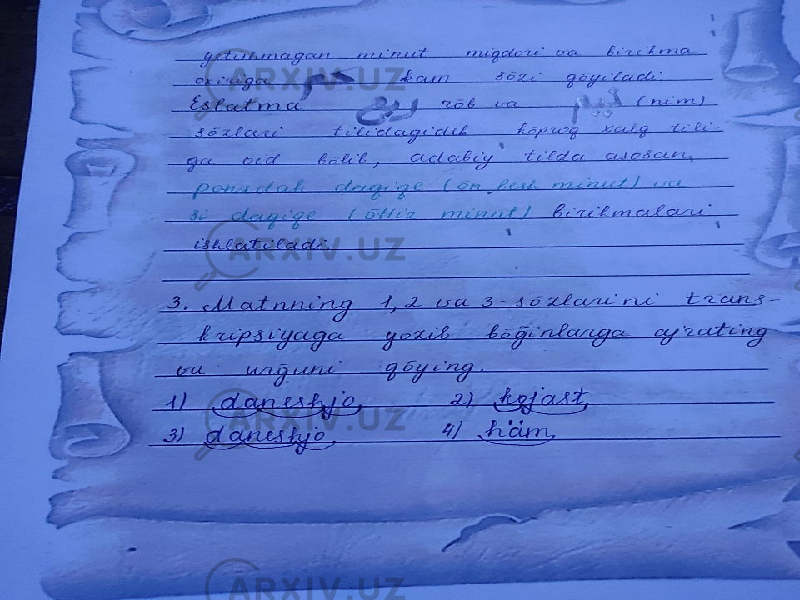 yetinmagan minut miqdori va birikma
oxiriga کم kam sözi qöyiladi.
Eslatma ربع röb va نیم (nim)
sözlari tilidagideb köproq xalq tili-
ga oid bölib, adabiy tilda asosan,
ponzdah daqiqe (ön besh minut) va
si daqiqe (öttiz minut) birikmalari
ishlatiladi.
3. Matnning 1, 2 va 3-sözlarini trans-
kripsiyaga yozib böğinlarga ajrating
va urğuni qöying.
1) daneshjo 2) kojast
3) daneshjo 4) häm
ARXIV.UZ
ARXIV.UZ
ARXIV.UZ
ARXIV.UZ